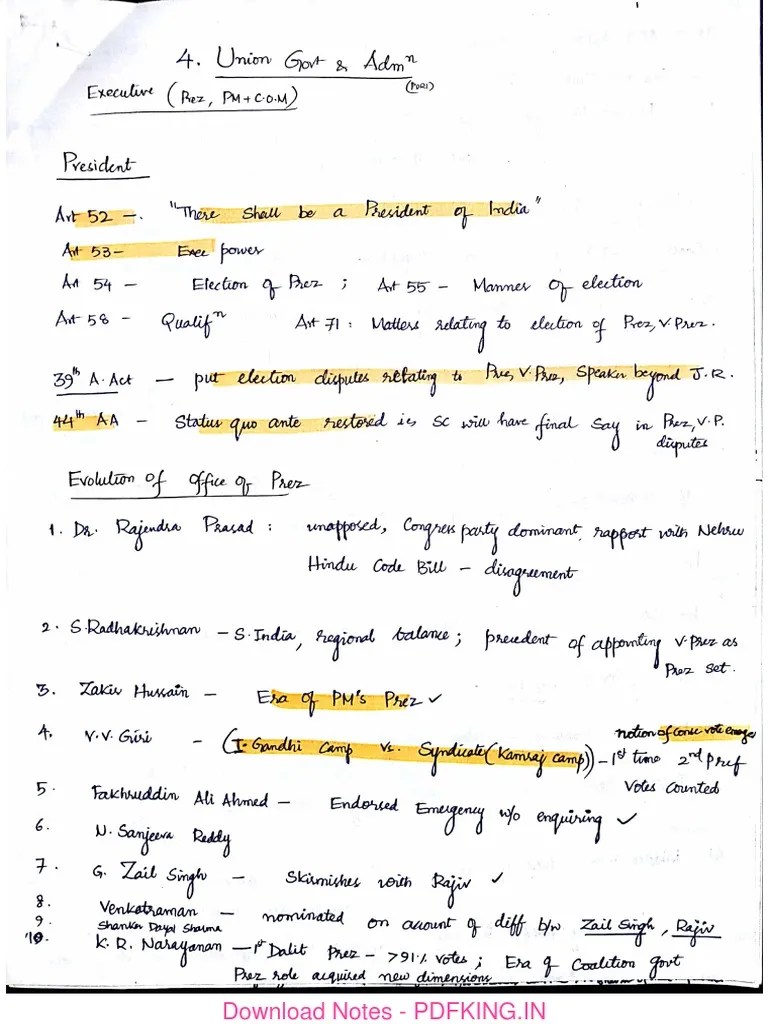 4. Union Govt & Admⁿ
Executive (Prez, PM + C.O.M) (PURI)
President
Art 52 –. "There shall be a President of India"
Art 53 – Exec power
Art 54 – Election of Prez ; Art 55 – Manner of election
Art 58 – Qualifⁿ Art 71 : Matters relating to election of Prez, V.Prez.
39th A. Act – put election disputes relating to Pre, V.Prez, Speaker beyond J.R.
44th AA – Status quo ante restored ie SC will have final say in Prez, V.P.
disputes
Evolution of Office of Prez
1. Dr. Rajendra Prasad : unapposed, Congress party dominant, rapport with Nehru
Hindu Code Bill – disagreement
2. S.Radhakrishnan – S.India, regional balance ; precedent of appointing V.Prez as
Prez set.
3. Zakir Hussain – Era of PM's Prez ✓
notion of consc vote emerge
4. V.V. Giri – (I. Gandhi Camp vs. Syndicate (Kamraj camp)) – 1st time 2nd pref
Votes Counted
5. Fakhruddin Ali Ahmed – Endorsed Emergency w/o enquiring ✓
6. N. Sanjeeva Reddy
7. G. Zail Singh – Skirmishes with Rajiv ✓
8. Venkatraman – nominated on account of diff b/w Zail Singh, Rajiv
9. Shanker Dayal Sharma
10. K. R. Narayanan – 1st Dalit Prez – >91% votes ; Era of Coalition govt
Prez role acquired new dimensions
Download Notes - PDFKING.IN